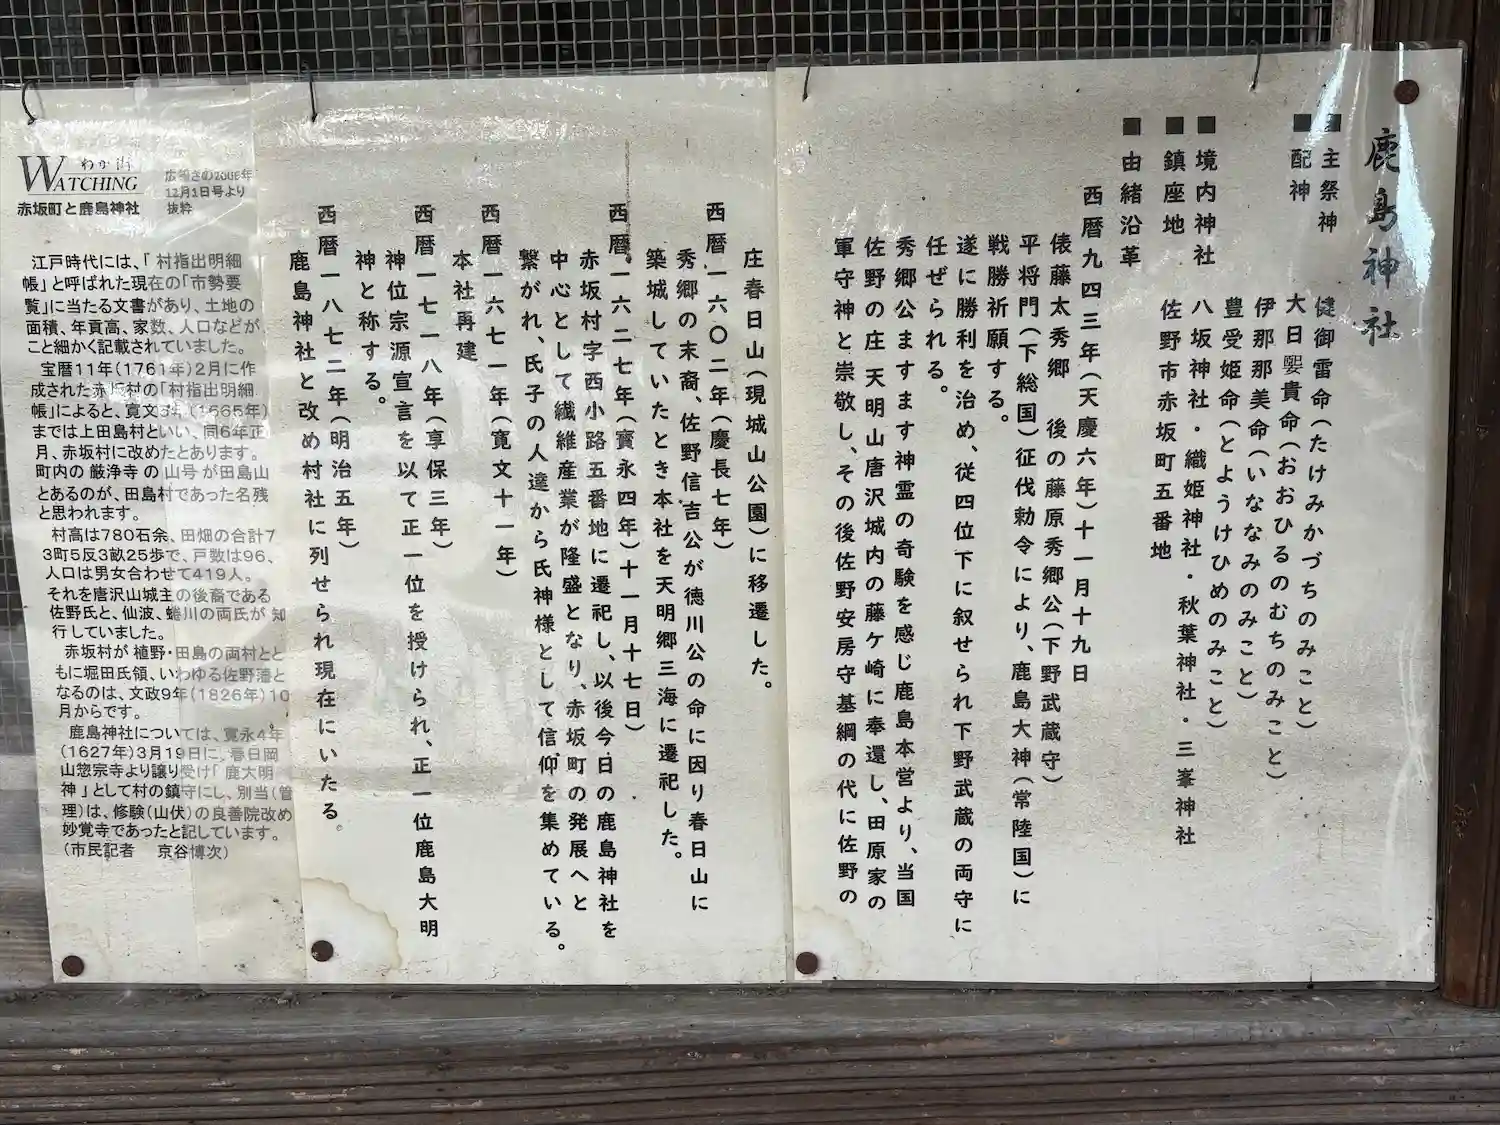 鹿島神社
■主祭神
健御雷命(たけみかづちのみこと)
■配神
大日孁貴命(おおひるのむちのみこと)
伊那那美命(いななみのみこと)
豊受姫命(とようけひめのみこと)
■境内神社
八坂神社・織姫神社・秋葉神社・三峯神社
■鎮座地
佐野市赤坂町五番地
■由緒沿革
西暦九四三年(天慶六年)十一月十九日
俵藤太秀郷 後の藤原秀郷公(下野武蔵守)
平将門(下総国)征伐勅令により、鹿島大神(常陸国)に
戦勝祈願する。
遂に勝利を治め、従四位下に叙せられ下野武蔵の両守に
任ぜられる。
秀郷公ますます神霊の奇験を感じ鹿島本営より、当国
佐野の庄 天明山唐沢城内の藤ケ崎に奉還し、田原家の
軍守神と崇敬し、その後佐野安房守基綱の代に佐野の
庄春日山(現城山公園)に移遷した。
西暦一六〇二年(慶長七年)
秀郷の末裔、佐野信吉公が徳川公の命に因り春日山に
築城していたとき本社を天明郷三海に遷祀した。
西暦一六二七年(寳永四年)十一月十七日)
赤坂村字西小路五番地に遷祀し、以後今日の鹿島神社を
中心として繊維産業が隆盛となり、赤坂町の発展へと
繋がれ、氏子の人達から氏神様として信仰を集めている。
西暦一六七一年(寛文十一年)
本社再建
西暦一七一八年(享保三年)
神位宗源宣言を以て正一位を授けられ、正一位鹿島大明
神と称する。
西暦一八七二年(明治五年)
鹿島神社と改め村社に列せられ現在にいたる。
わが街
WATCHING
赤坂町と鹿島神社
広報さの2006年
12月1日号より
抜粋
江戸時代には、「村指出明細
帳」と呼ばれた現在の「市勢要
覧」に当たる文書があり、土地の
面積、年貢高、家数、人口などが
こと細かく記載されていました。
宝暦11年(1761年)2月に作
成された赤坂村の「村指出明細
帳」によると、寛文5年(1665年)
までは上田島村といい、同6年正
月、赤坂村に改めたとあります。
町内の厳浄寺の山号が田島山
とあるのが、田島村であった名残
と思われます。
村高は780石余、田畑の合計7
3町5反3畝25歩で、戸数は96、
人口は男女合わせて419人。
それを唐沢山城主の後裔である
佐野氏と、仙波、蜷川の両氏が知
行していました。
赤坂村が植野・田島の両村とと
もに堀田氏領、いわゆる佐野藩と
なるのは、文政9年(1826年)10
月からです。
鹿島神社については、寛永4年
(1627年)3月19日に、春日岡
山惣宗寺より譲り受け「鹿大明
神」として村の鎮守にし、別当(管
理)は、修験(山伏)の良善院改め
妙覚寺であったと記しています。
(市民記者 京谷博次)